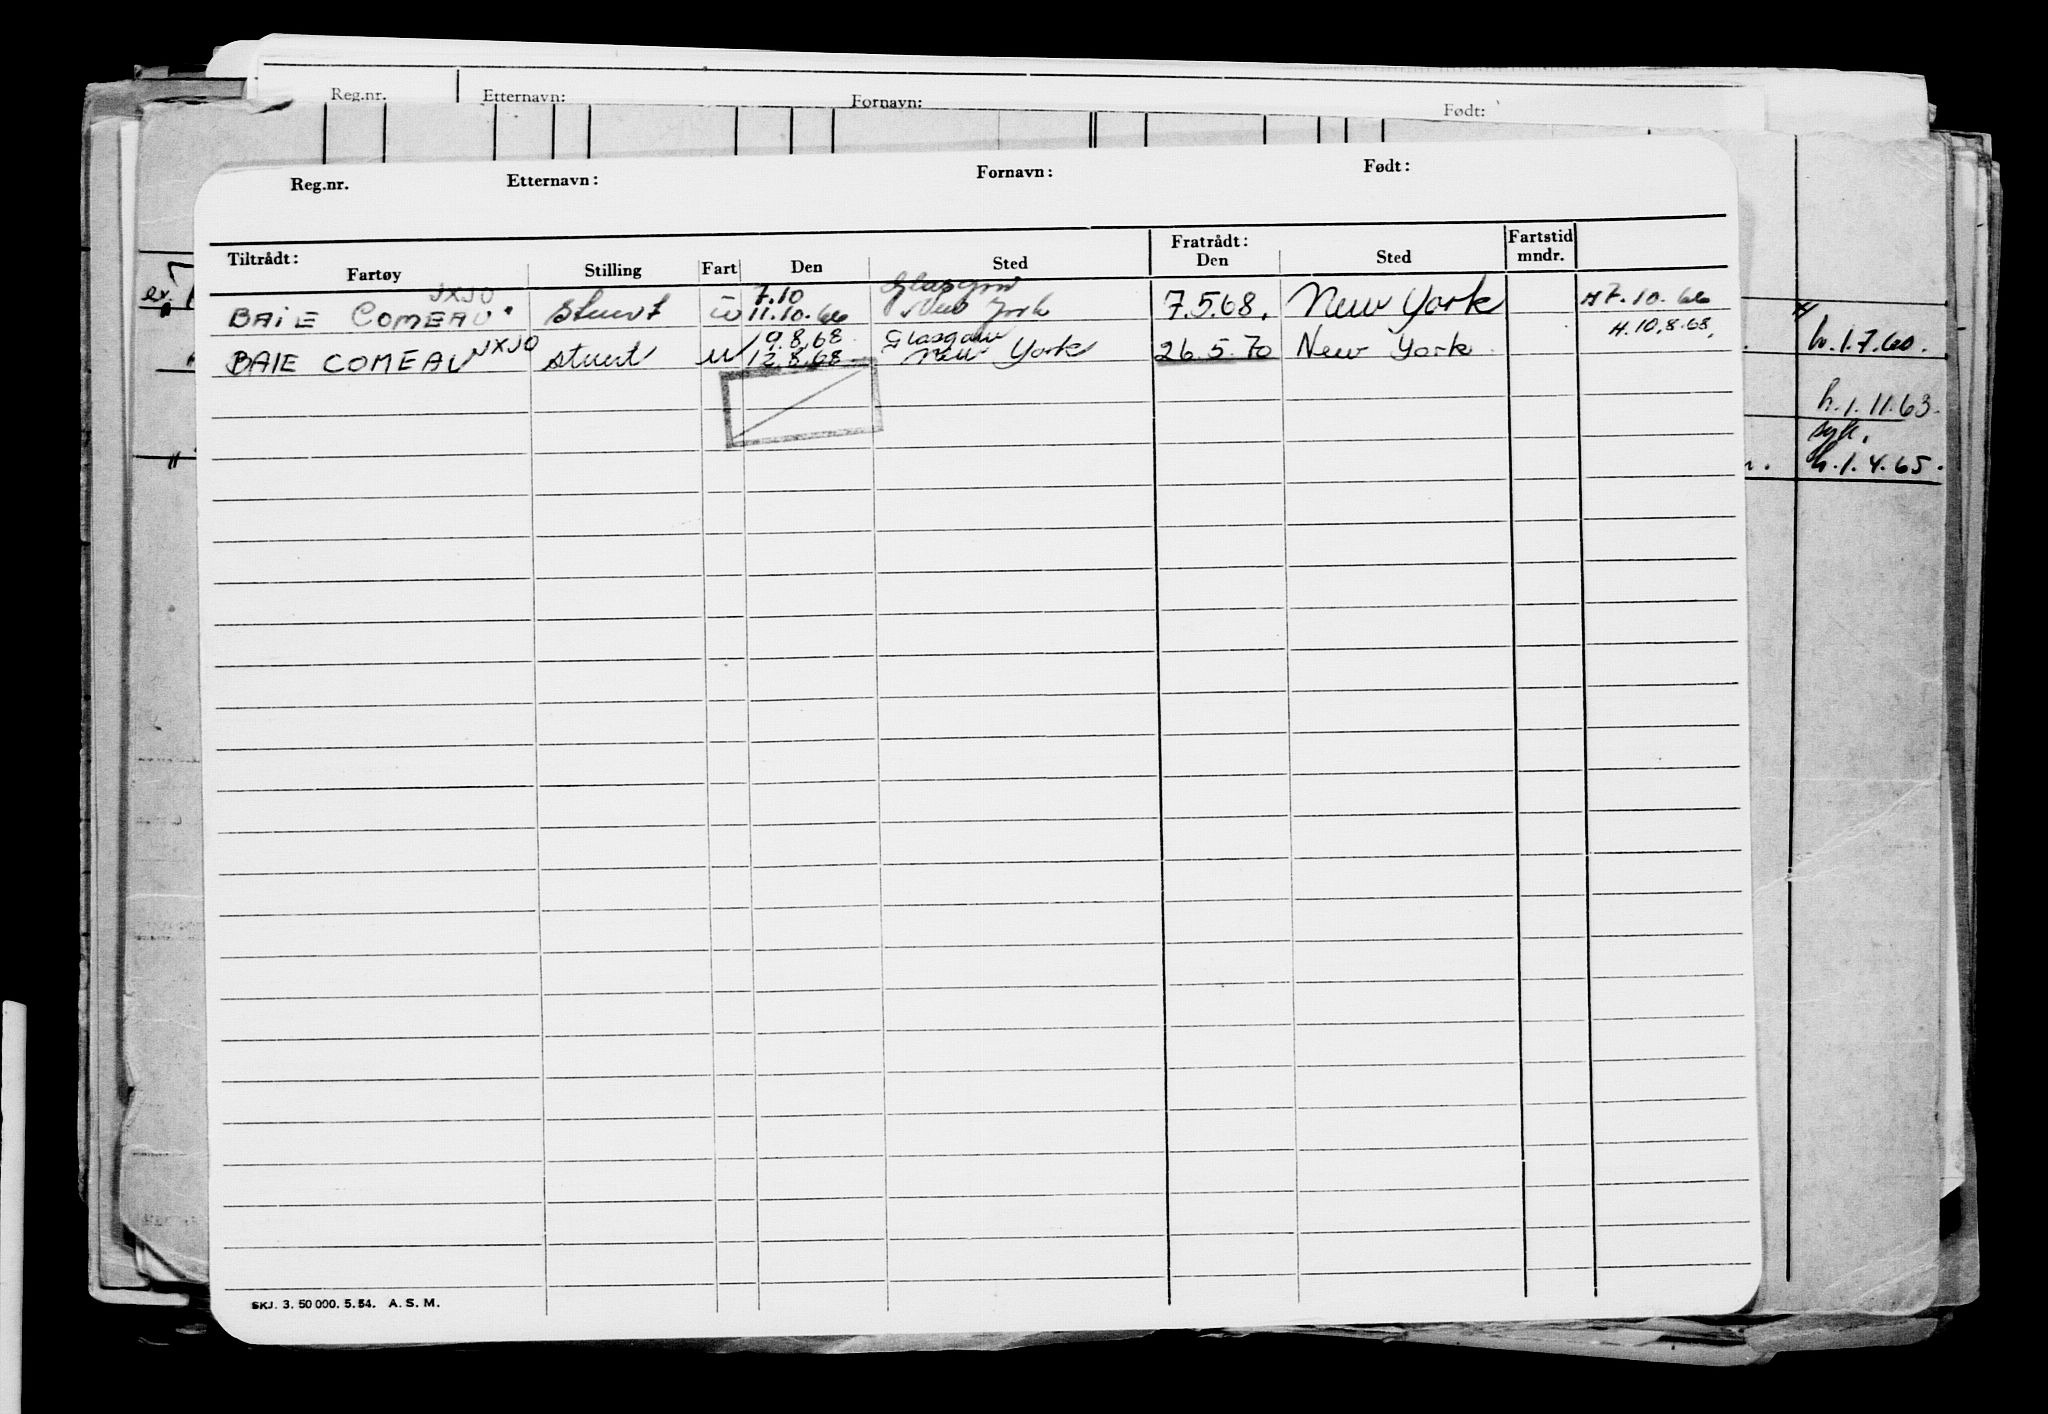 Reg.nr. Etternavn: Fornavn: Født:
Reg.nr. Etternavn: Fornavn: Født:
Tiltrådt: Fratrådt: Fartstid
Fartøy Stilling Fart Den Sted Den Sted mndr.
JXJO 7.10 Glasgow
BAIE COMEAU stuert u 11.10.66 New York 7.5.68. New York H 7.10.66
9.8.68 Glasgow H.10.8.68.
BAIE COMEAU JXJO stuert u 12.8.68 New York 26.5.70 New York
ex.
h.1.7.60.
h.1.11.63.
syk.
h.1.4.65.
SKJ. 3. 50 000. 5. 54. A. S. M.